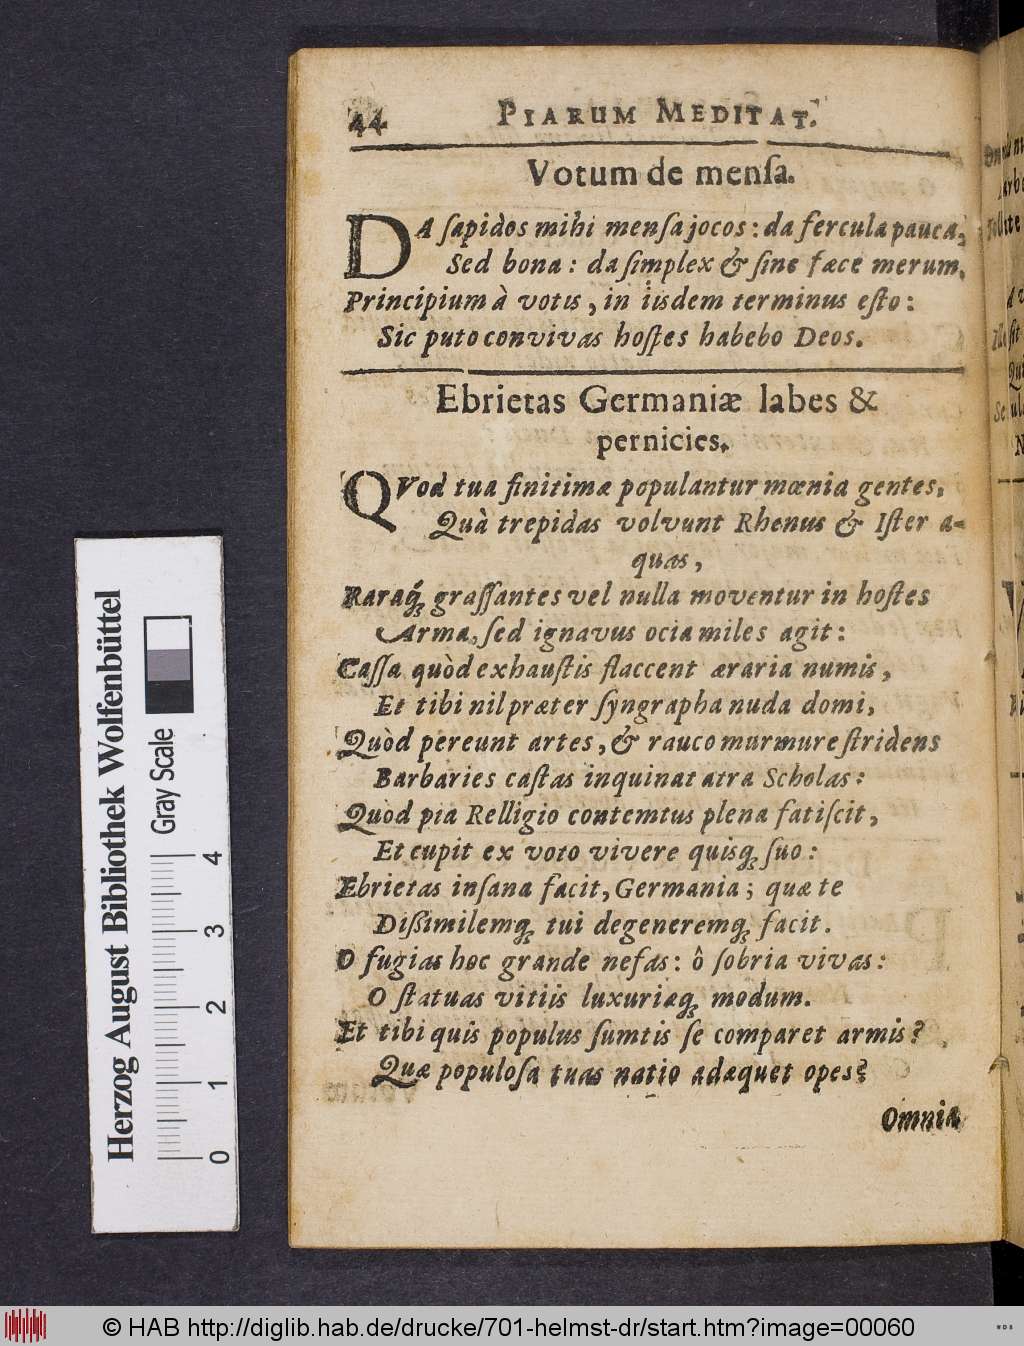 44 PIARUM MEDITAT.
Votum de menſa.
DA ſapidos mihi menſa jocos: da fercula pauca,
Sed bona: da ſimplex & ſine fæce merum,
Principium à votis, in iisdem terminus eſto:
Sic puto convivas hoſpes habebo Deos.
Ebrietas Germaniæ labes &
pernicies.
QVod tua finitimæ populantur mœnia gentes,
Quà trepidas volvunt Rhenus & Iſter a-
quas,
Raraq́; graſſantes vel nulla moventur in hoſtes
Arma, ſed ignavus ocia miles agit:
Caſſa quòd exhauſtis flaccent æraria numis,
Et tibi nil præter ſyngrapha nuda domi,
Quòd pereunt artes, & rauco murmure ſtridens
Barbaries caſtas inquinat atra Scholas:
Quòd pia Relligio contemtus plena fatiſcit,
Et cupit ex voto vivere quisq; ſuo:
Ebrietas inſana facit, Germania; quæ te
Diſsimilemq; tui degeneremq; facit.
O fugias hoc grande nefas: ô ſobria vivas:
O ſtatuas vitiis luxuriæq; modum.
Et tibi quis populus ſumtis ſe comparet armis?
Quæ populoſa tuas natio adæquet opes?
Omnia
Herzog August Bibliothek Wolfenbüttel
Gray Scale
0 1 2 3 4
© HAB http://diglib.hab.de/drucke/701-helmst-dr/start.htm?image=00060